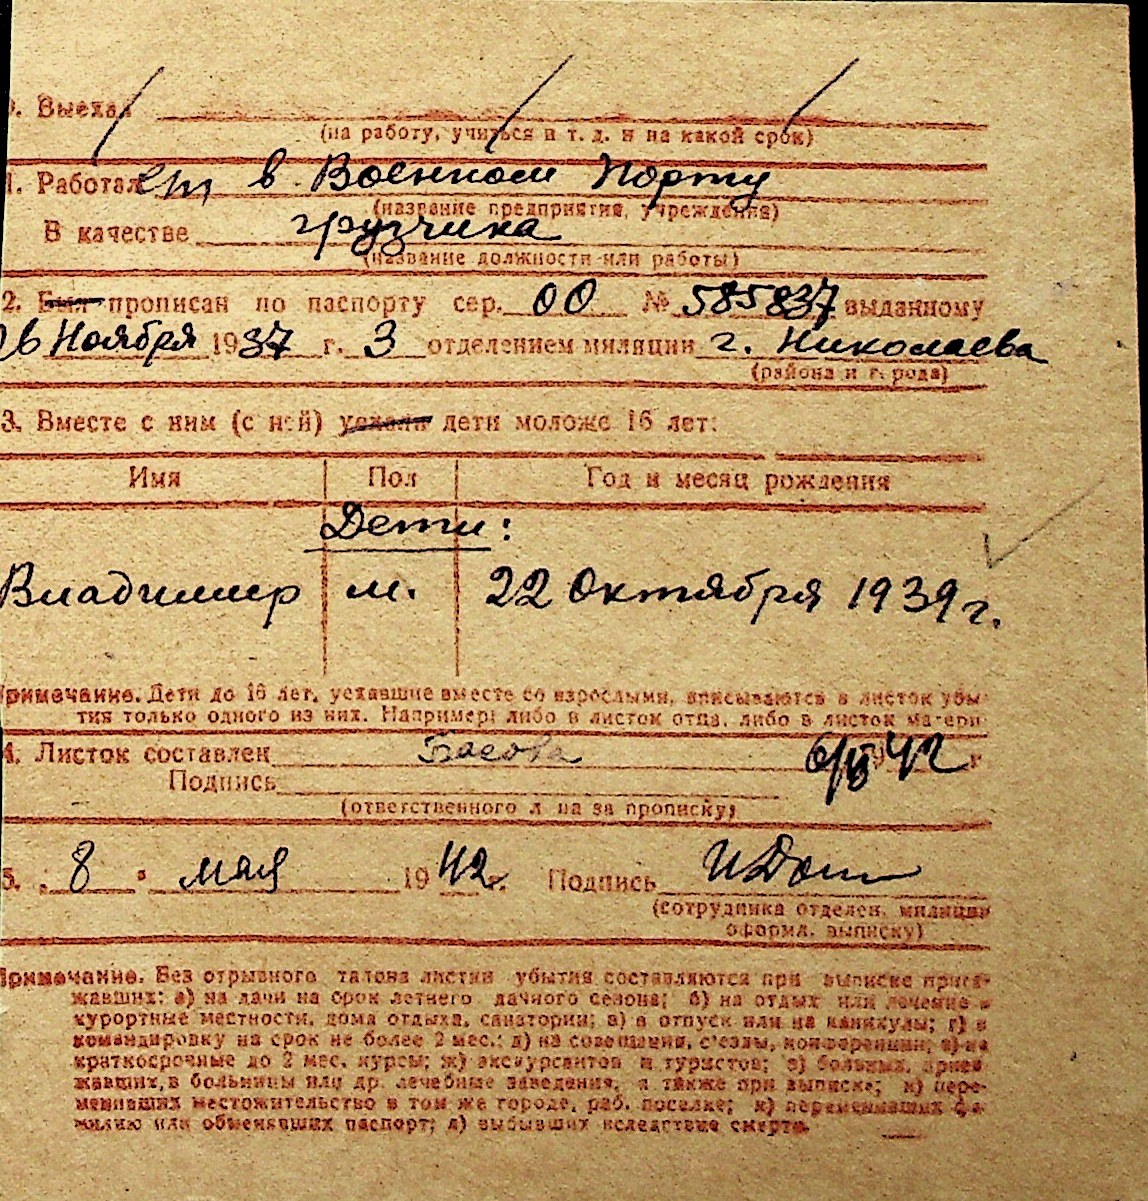 0. Выехал
(на работу, учиться и т. д. и на какой срок)
1. Работает в Военном Порту
(название предприятия, учреждения)
В качестве грузчика
(название должности или работы)
2. Был прописан по паспорту сер. 00 № 585837 выданному
26 Ноября 1937 г. 3 отделением милиции г. Николаева
(района и города)
3. Вместе с ним (с ней) уехали дети моложе 16 лет:
Имя Пол Год и месяц рождения
Дети:
Владимир м. 22 Октября 1939 г.
Примечание. Дети до 16 лет, уехавшие вместе со взрослыми, вписываются в листок убы-
тия только одного из них. Например: либо в листок отца, либо в листок матери
4. Листок составлен Басова 42 г
Подпись
(ответственного лица за прописку)
5. "8" мая 1942 г. Подпись
(сотрудника отделен. милиции
оформл. выписку)
Примечание. Без отрывного талона листки убытия составляются при выписке приез-
жавших: а) на дачи на срок летнего дачного сезона; б) на отдых или лечение в
курортные местности, дома отдыха, санатории; в) в отпуск или на каникулы; г) в
командировку на срок не более 2 мес.; д) на совещания, с'езды, конференции; е) на
краткосрочные до 2 мес. курсы; ж) экскурсантов и туристов; з) больных, приез-
жавших, в больницы или др. лечебные заведения, а также при выписке; и) пере-
менивших местожительство в том же городе, раб. поселке; к) переменивших фа-
милию или обменявших паспорт; л) выбывших вследствие смерти.